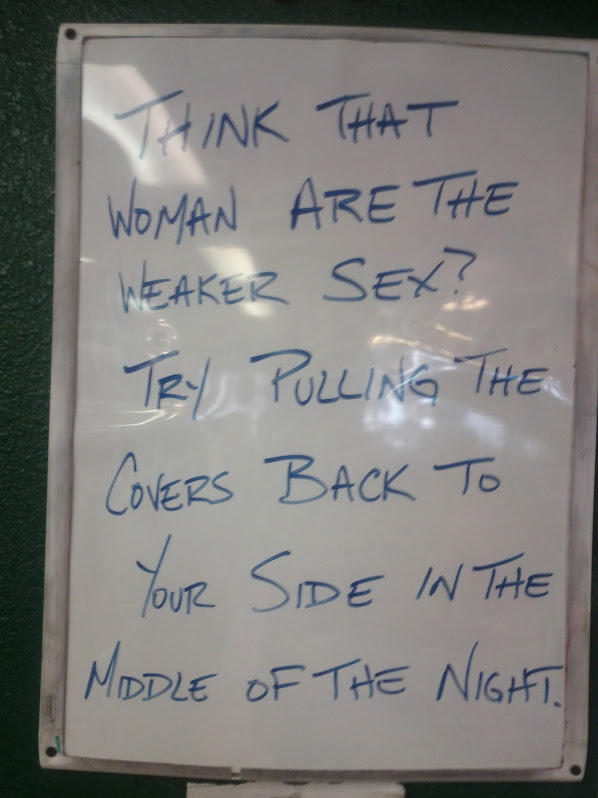 THINK THAT
WOMAN ARE THE
WEAKER SEX?
TRY PULLING THE
COVERS BACK TO
YOUR SIDE IN THE
MIDDLE OF THE NIGHT.